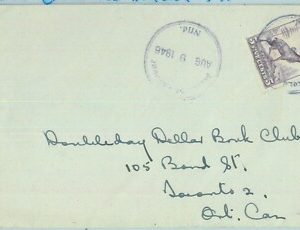 Nfld.
AUG 9 1946
Doubleday Dollar Book Club
105 Bond St.
Toronto 2.
Ont. Can